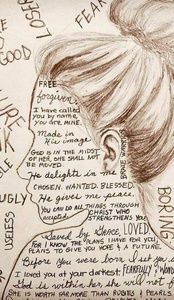 FEAR
LOSER
GOOD
FREE
forgiven
I have called
you by name,
you are mine.
Made in
His image
GOD IS IN THE MIDST
OF HER, SHE SHALL NOT
BE MOVED.
He delights in me
CHOSEN. WANTED. BLESSED.
He gives me peace
YOU CAN DO ALL THINGS THROUGH
accepted
CHRIST WHO
STRENGTHENS YOU
Saved by Grace, LOVED.
FOR I KNOW THE PLANS I HAVE FOR YOU,
PLANS TO GIVE YOU HOPE & A FUTURE.
Before you were born I set you
I loved you at your darkest.
FEARFULLY &
God is within her she will not
SHE IS WORTH FAR MORE THAN RUBIES & PEARLS
BRAVE
UGLY
USELESS
BORING